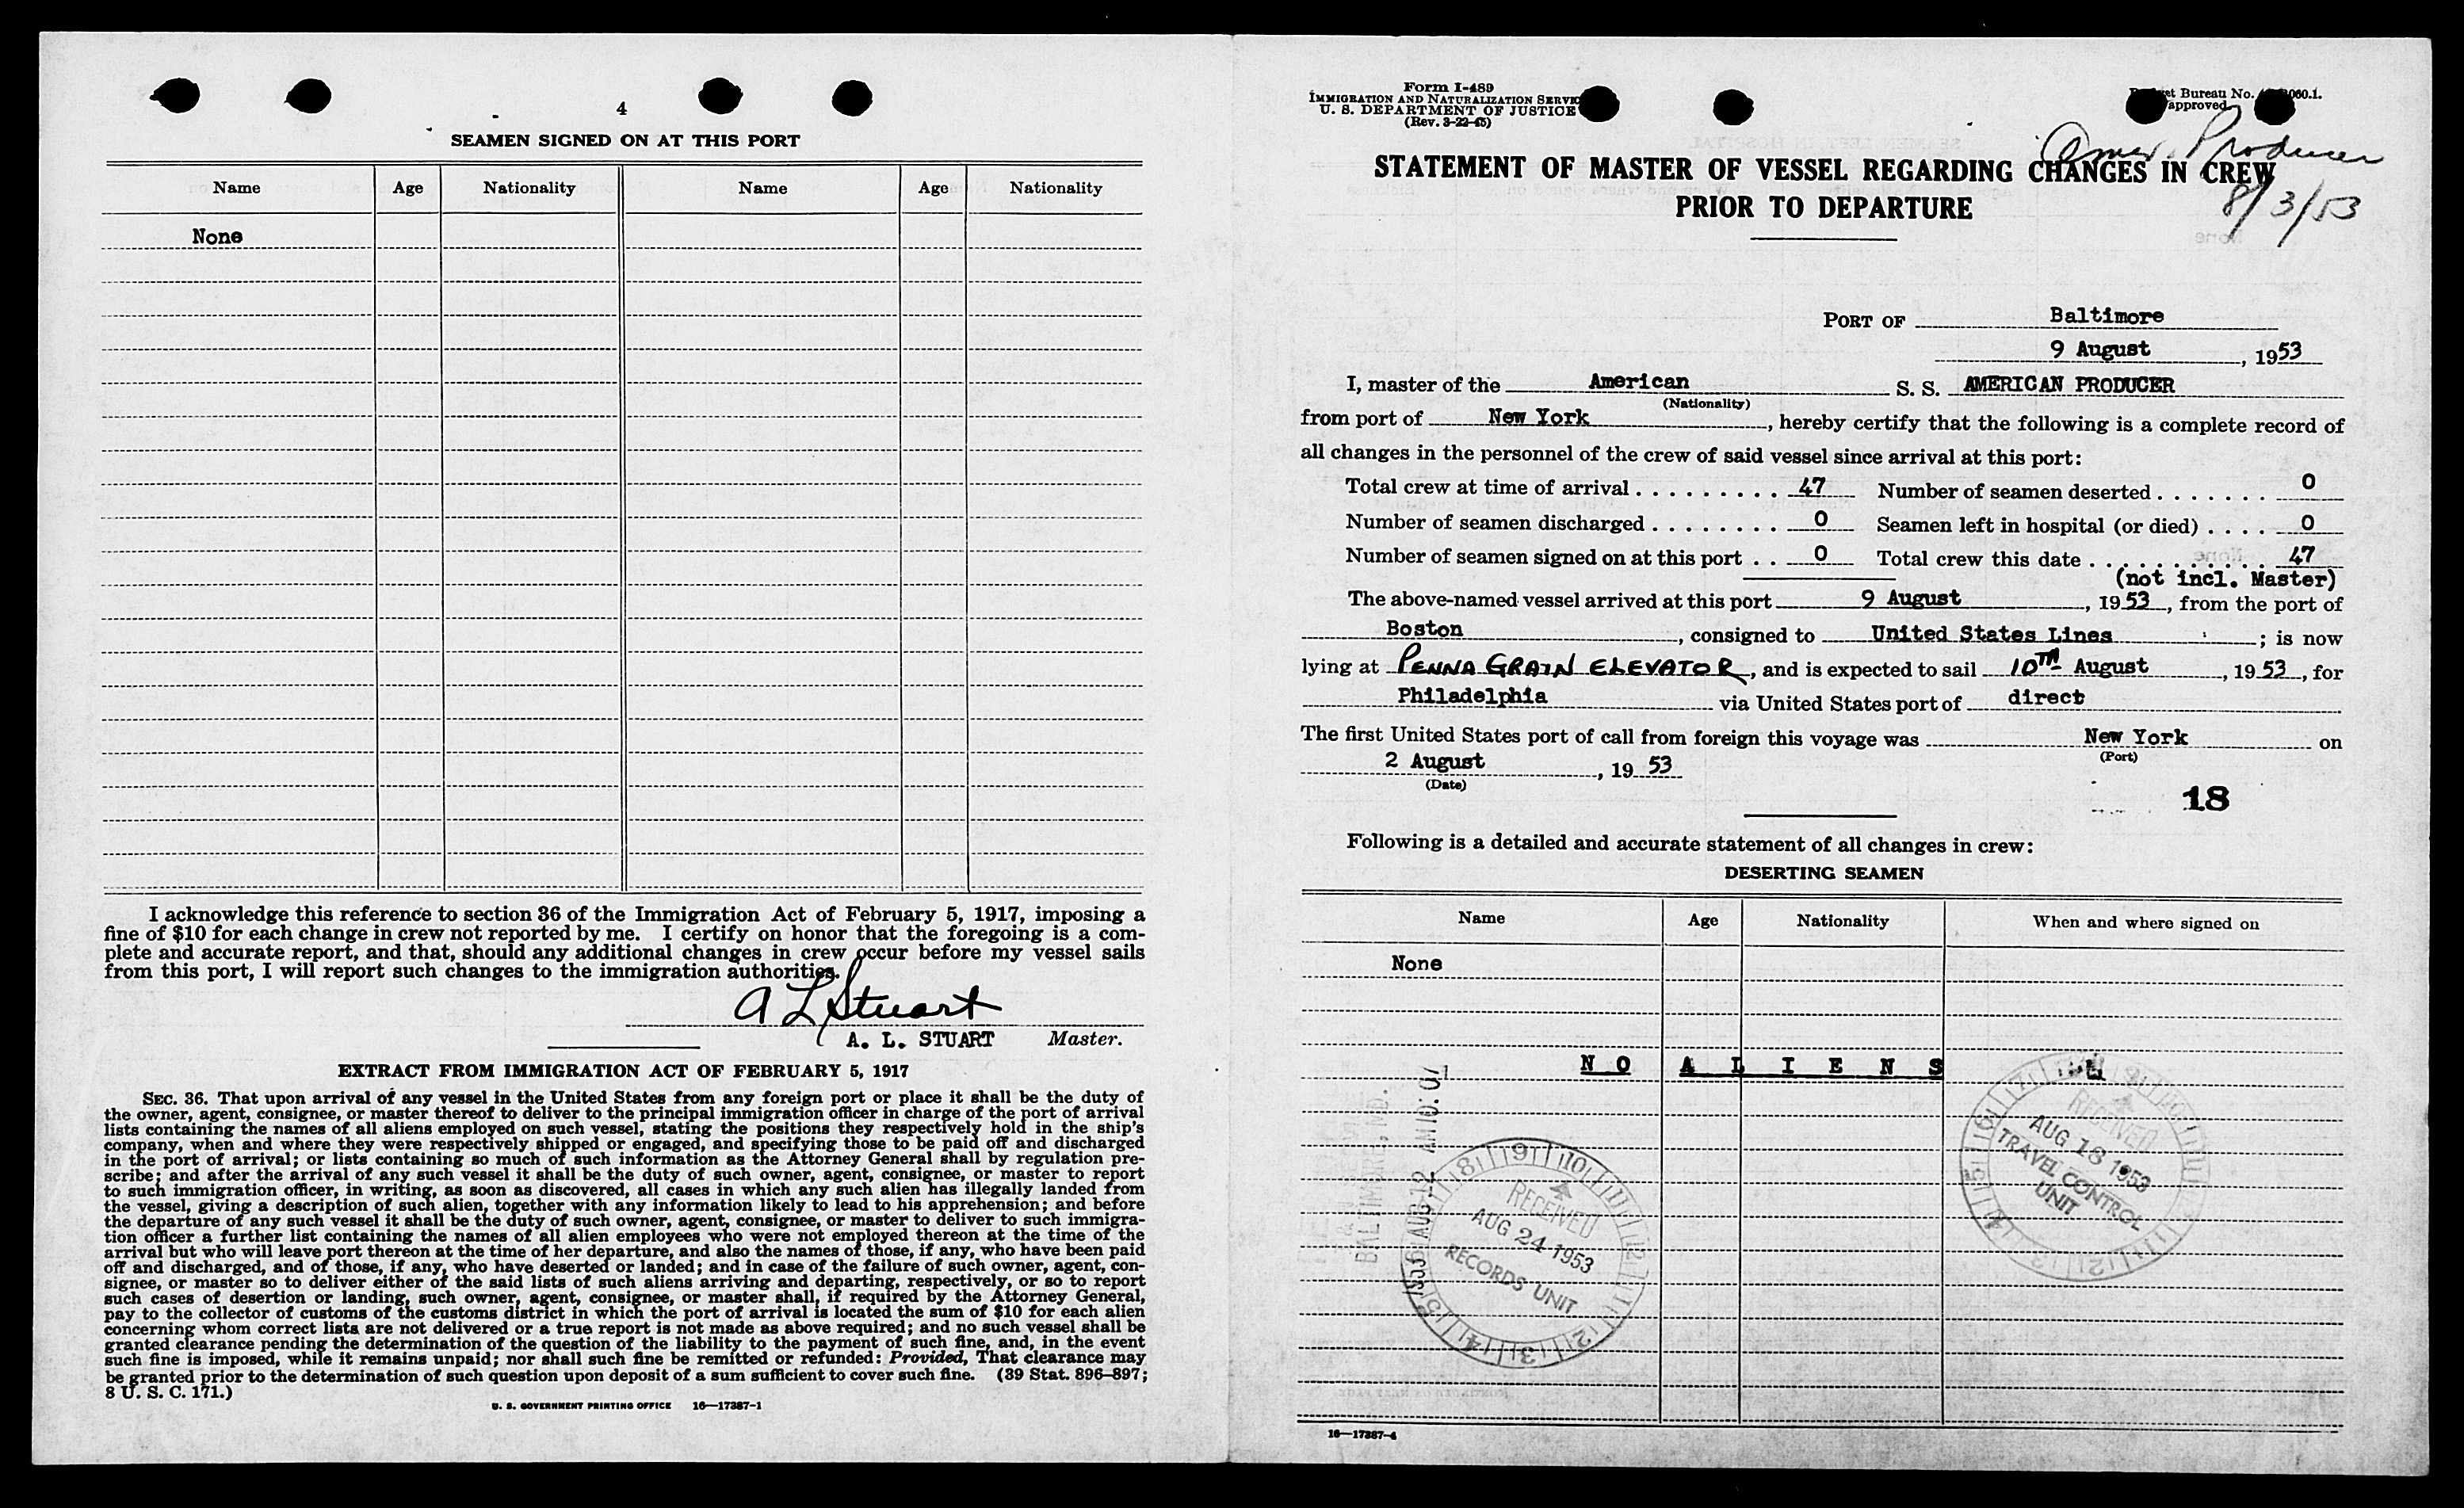 4
SEAMEN SIGNED ON AT THIS PORT
Name Age Nationality Name Age Nationality
None
I acknowledge this reference to section 36 of the Immigration Act of February 5, 1917, imposing a
fine of $10 for each change in crew not reported by me. I certify on honor that the foregoing is a com-
plete and accurate report, and that, should any additional changes in crew occur before my vessel sails
from this port, I will report such changes to the immigration authorities.
A L Stuart
A. L. STUART Master.
EXTRACT FROM IMMIGRATION ACT OF FEBRUARY 5, 1917
SEC. 36. That upon arrival of any vessel in the United States from any foreign port or place it shall be the duty of
the owner, agent, consignee, or master thereof to deliver to the principal immigration officer in charge of the port of arrival
lists containing the names of all aliens employed on such vessel, stating the positions they respectively hold in the ship's
company, when and where they were respectively shipped or engaged, and specifying those to be paid off and discharged
in the port of arrival; or lists containing so much of such information as the Attorney General shall by regulation pre-
scribe; and after the arrival of any such vessel it shall be the duty of such owner, agent, consignee, or master to report
to such immigration officer, in writing, as soon as discovered, all cases in which any such alien has illegally landed from
the vessel, giving a description of such alien, together with any information likely to lead to his apprehension; and before
the departure of any such vessel it shall be the duty of such owner, agent, consignee, or master to deliver to such immigra-
tion officer a further list containing the names of all alien employees who were not employed thereon at the time of the
arrival but who will leave port thereon at the time of her departure, and also the names of those, if any, who have been paid
off and discharged, and of those, if any, who have deserted or landed; and in case of the failure of such owner, agent, con-
signee, or master so to deliver either of the said lists of such aliens arriving and departing, respectively, or so to report
such cases of desertion or landing, such owner, agent, consignee, or master shall, if required by the Attorney General,
pay to the collector of customs of the customs district in which the port of arrival is located the sum of $10 for each alien
concerning whom correct lists are not delivered or a true report is not made as above required; and no such vessel shall be
granted clearance pending the determination of the question of the liability to the payment of such fine, and, in the event
such fine is imposed, while it remains unpaid; nor shall such fine be remitted or refunded: Provided, That clearance may
be granted prior to the determination of such question upon deposit of a sum sufficient to cover such fine. (39 Stat. 896–897;
8 U. S. C. 171.)
U. S. GOVERNMENT PRINTING OFFICE 16—17387-1
Form I-489
IMMIGRATION AND NATURALIZATION SERVIC
U. S. DEPARTMENT OF JUSTICE
(Rev. 3-22-45)
et Bureau No. 060.1.
approved
Amer. Producer
8/3/53
STATEMENT OF MASTER OF VESSEL REGARDING CHANGES IN CREW
PRIOR TO DEPARTURE
PORT OF Baltimore
9 August, 1953
I, master of the American S. S. AMERICAN PRODUCER
(Nationality)
from port of New York, hereby certify that the following is a complete record of
all changes in the personnel of the crew of said vessel since arrival at this port:
Total crew at time of arrival . . . . . . . . . . 47 Number of seamen deserted . . . . . . . 0
Number of seamen discharged . . . . . . . . 0 Seamen left in hospital (or died) . . . . 0
Number of seamen signed on at this port . . 0 Total crew this date . . . . . . . . . . . 47
(not incl. Master)
The above-named vessel arrived at this port 9 August, 1953, from the port of
Boston, consigned to United States Lines; is now
lying at PENNA GRAIN ELEVATOR, and is expected to sail 10TH August, 1953, for
Philadelphia via United States port of direct
The first United States port of call from foreign this voyage was New York on
(Port)
2 August, 1953
(Date)
18
Following is a detailed and accurate statement of all changes in crew:
DESERTING SEAMEN
Name Age Nationality When and where signed on
None
NO ALIENS
BALTIMORE, MD.
1953 AUG 12 AM 10:07
RECEIVED
AUG 24 1953
RECORDS UNIT
RECEIVED
AUG 18 1953
TRAVEL CONTROL
UNIT
16—17387-4